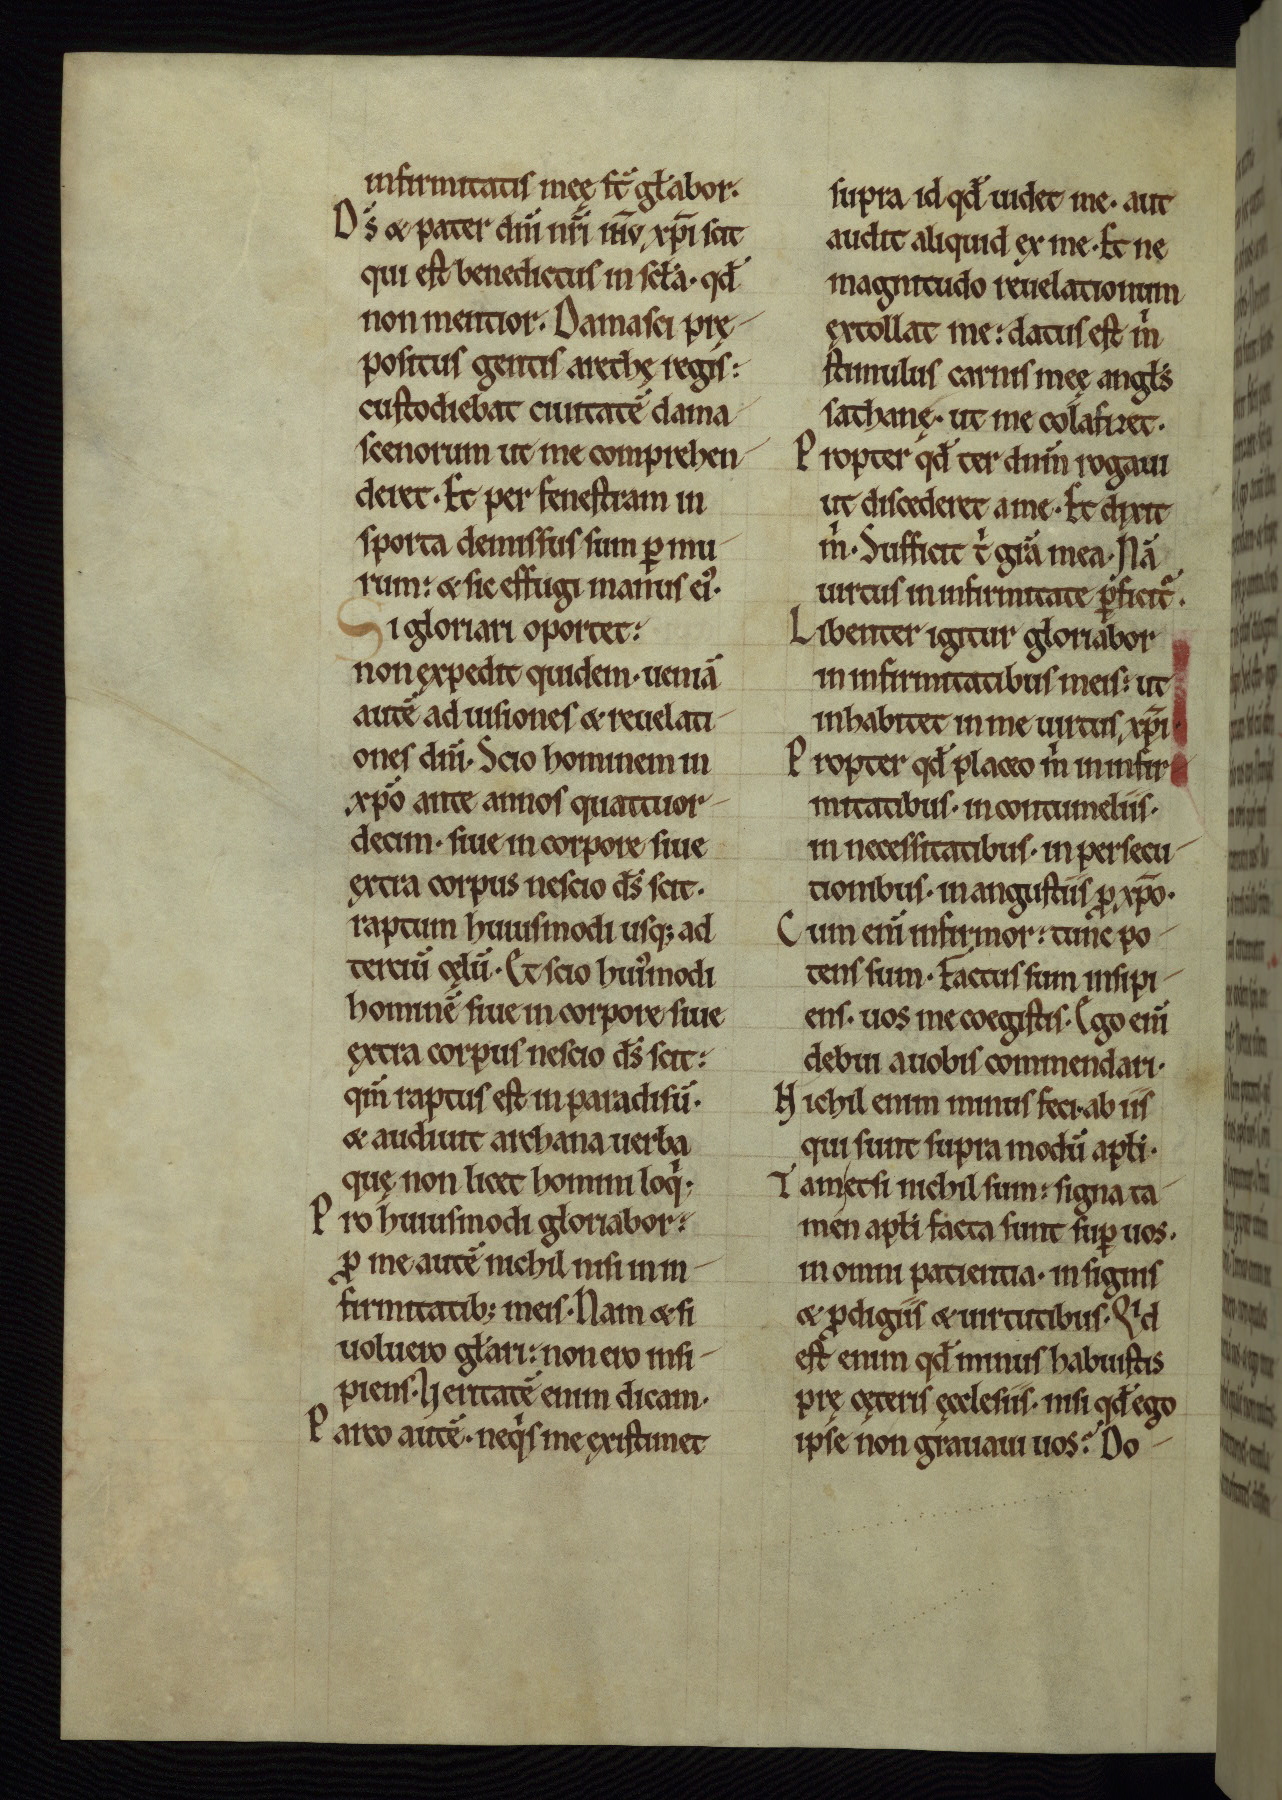 infirmitatis meę st̄ gl̄abor.
D̄s & pater dn̄i nr̄i ih̄u xp̄i scit
qui est benedictus in scl̄a. qd̄
non mentior. Damasci prę
positus gentis arethę regis:
custodiebat ciuitatē dama
scenorum ut me comprehen
deret. Et per fenestram in
sporta demissus sum ꝑ mu
rum: & sic effugi manus ei᾿.
Si gloriari oportet:
non expedit quidem. ueniā
autē ad uisiones & reuelati
ones dn̄i. Scio hominem in
xp̄o ante annos quattuor
decim. siue in corpore siue
extra corpus nescio d̄s scit.
raptum huiusmodi usq; ad
terciū cęlū. Et scio hui᾿modi
hominē siue in corpore siue
extra corpus nescio d̄s scit:
qm̄ raptus est in paradisū.
& audiuit archana uerba
quę non licet homini loqͥ.
Pro huiusmodi gloriabor:
ꝓ me autē nichil nisi in in
firmitatib; meis. Nam & si
uoluero gl̄ari: non ero insi
piens. Veritatē enim dicam.
Parco autē. neqͥs me existimet
supra id qd̄ uidet me. aut
audit aliquid ex me. Et ne
magnitudo reuelationum
extollat me: datus est m̄
stimulus carnis meę angl̄s
sathanę. ut me colafizet.
Propter qd̄ ter dn̄m rogaui
ut discederet a me. Et dixit
m̄. Sufficit t̄ grā mea. Nā
uirtus in infirmitate ꝑficit᾿.
Libenter igitur gloriabor
in infirmitatibus meis: ut
inhabitet in me uirtus xp̄i.
Propter qd̄ placeo m̄ in infir
mitatibus. in contumeliis.
in necessitatibus. in persecu
tionibus. in angustiis ꝓ xp̄o.
Cum enī infirmor: tunc po
tens sum. Factus sum insipi
ens. uos me coegistis. Ego enī
debui a uobis commendari.
Nichil enim minus feci. ab iis
qui sunt supra modū apl̄i.
Tametsi nichil sum: signa ta
men apl̄i facta sunt suꝑ uos.
in omni patientia. in signis
& ꝓdigiis & uirtutibus. Qͥd
est enim qd̄ minus habuistis
prę cęteris ęcclesiis. nisi qd̄ ego
ipse non grauaui uos? Do